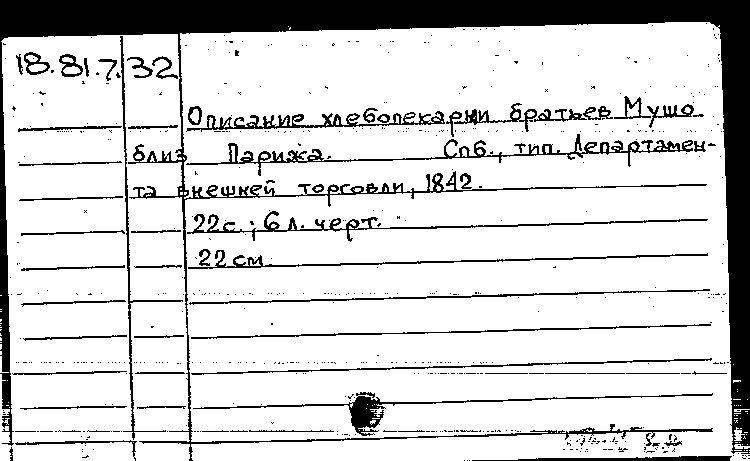 18.81.7.32
Описание хлебопекарни братьев Мушо
близ Парижа. Спб., тип. Департамен-
та внешней торговли, 1842.
22 с.; 6 л. черт.
22 см.